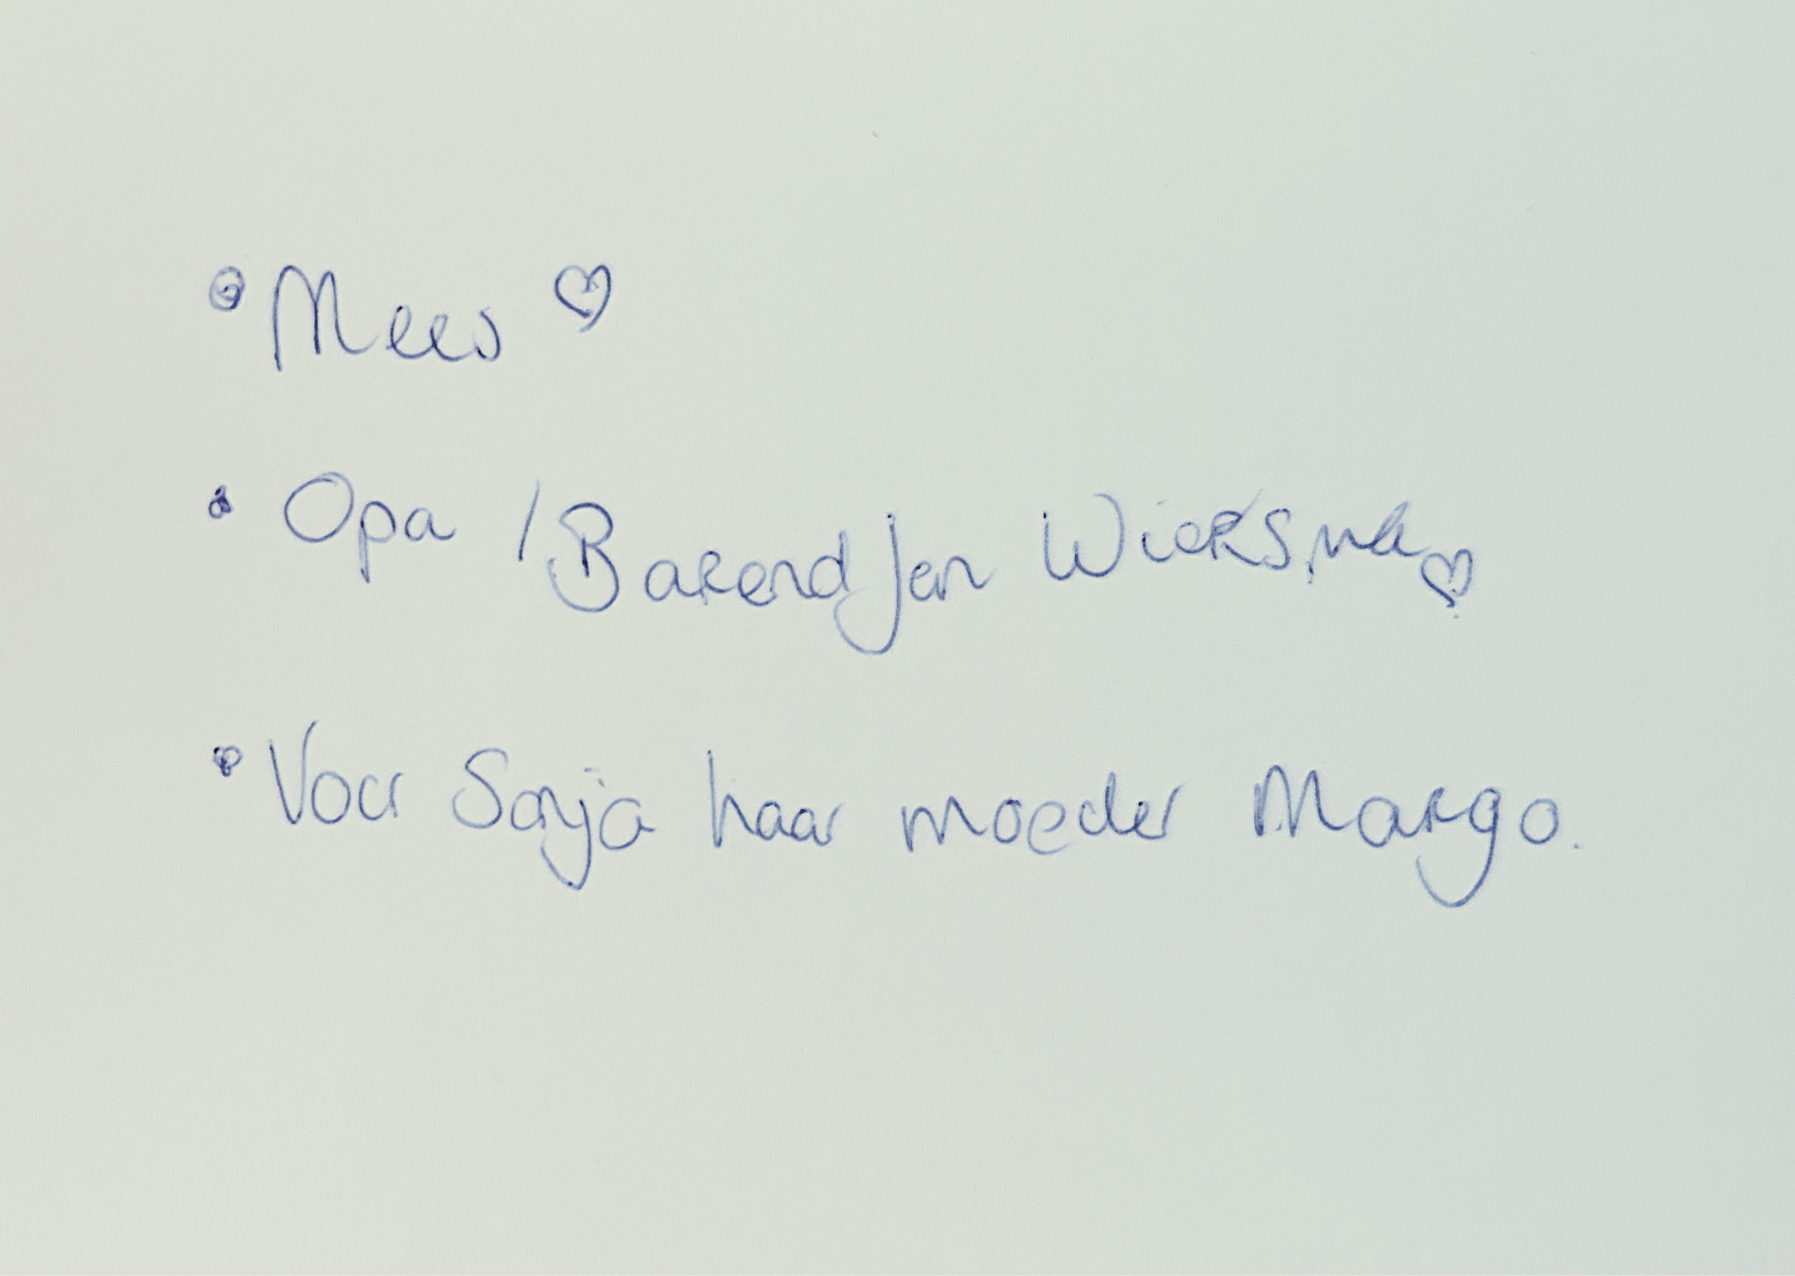 • Mees ♡
• Opa / Barend Jan Wiersma ♡
• Voor Sonja haar moeder Margo.